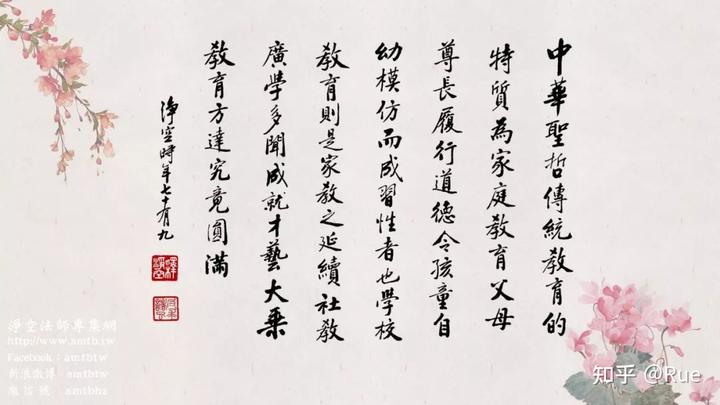 中華聖哲傳統教育的
特質為家庭教育父母
尊長履行道德令孩童自
幼模仿而成習性者也學校
教育則是家教之延續社教
廣學多聞成就才藝大乘
教育方達究竟圓滿
淨空時年七十有九
淨空法師專集網
http://www.amtb.tw
Facebook：amtbtw
新浪微博：amtbtw
微信號：amtbhz
知乎 @Rue